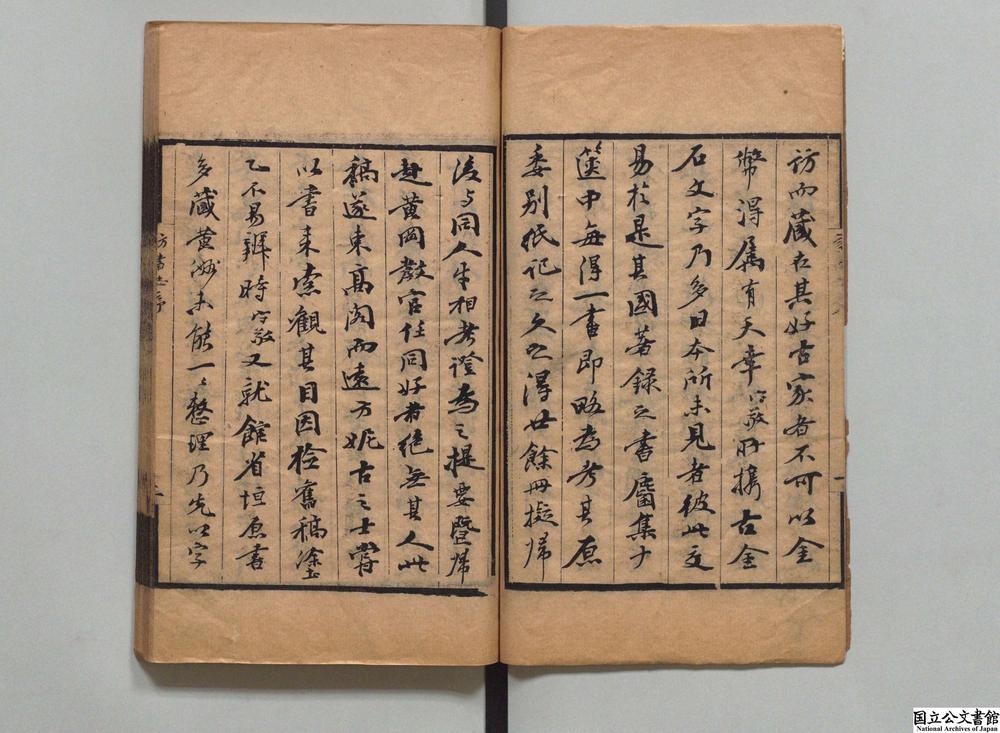 訪而藏在其好古家者不可以金
幣得屬有天幸守敬所攜古金
石文字乃多日本所未見者彼此交
易於是其國著錄之書麕集于
篋中每得一書即略爲考其原
委別紙記之久之得廿餘冊擬歸
後与同人牛相考證爲之提要曁歸
赴黃岡敎官任同好者絕無其人此
稿遂束高閣而遠方妮古之士嘗
以書来索觀其目因檢舊稿塗
乙不易辨時守敬又就館省垣原書
多藏黃州未能一〻整理乃先以字
訪書志序
國立公文書館
National Archives of Japan